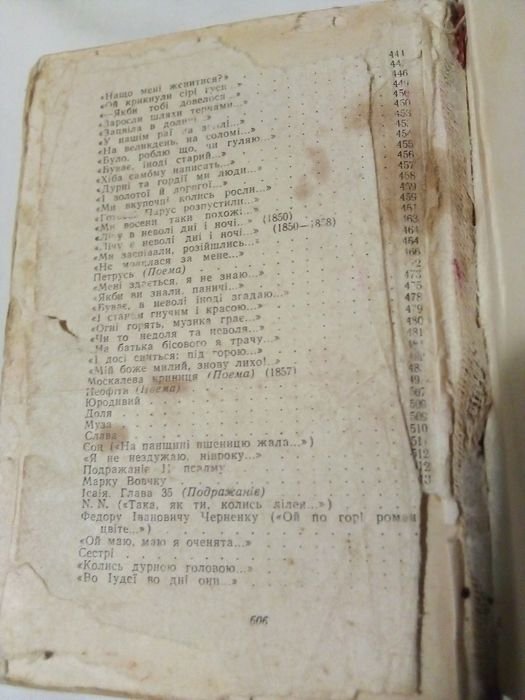 «Нащо мені женитися?» 441
«Ой крикнули сірі гуси
«—Якби тобі довелося 446
«Заросли шляхи тернами...»
«Зацвіла в долині 450
«У нашім раї на землі...» 450
«На великдень, на соломі...» 453
«Було, роблю що, чи гуляю...»
«Буває, іноді старий...» 454
«Хіба самому написать...» 455
«Дурні та гордії ми люди...» 456
«І золотої й дорогої...» 457
«Ми вкупочці колись росли...» 458
«Готово! Парус розпустили... 459
«Ми восени таки похожі...» 459
«Лічу в неволі дні і ночі...» (1850) 461
«Лічу в неволі дні і ночі...» (1850—1858) 463
«Ми заспівали, розійшлись...» 464
«Не молилася за мене...» 464
Петрусь (Поема) 466
«Мені здається, я не знаю...»
«Якби ви знали, паничі...» 473
«Буває, в неволі іноді згадаю...»
«І станом гнучим і красою...» 478
«Огні горять, музика грає...» 479
«Чи то недоля та неволя...» 480
«На батька бісового я трачу...» 481
«І досі сниться: під горою...»
«Мій боже милий, знову лихо!..»
Москалева криниця (Поема) (1857)
Неофіти (Поема)
Юродивий
Доля
Муза 509
Слава 510
Сон («На панщині пшеницю жала...»)
«Я не нездужаю, нівроку...»
Подражаніє 11 псалму
Марку Вовчку
Ісаія. Глава 35 (Подражаніє)
N. N. («Така, як ти, колись лілея...»)
Федору Івановичу Черненку («Ой по горі роман
цвіте...»)
«Ой маю, маю я оченята...»
Сестрі
«Колись дурною головою...»
«Во Іудеї во дні они...»
606